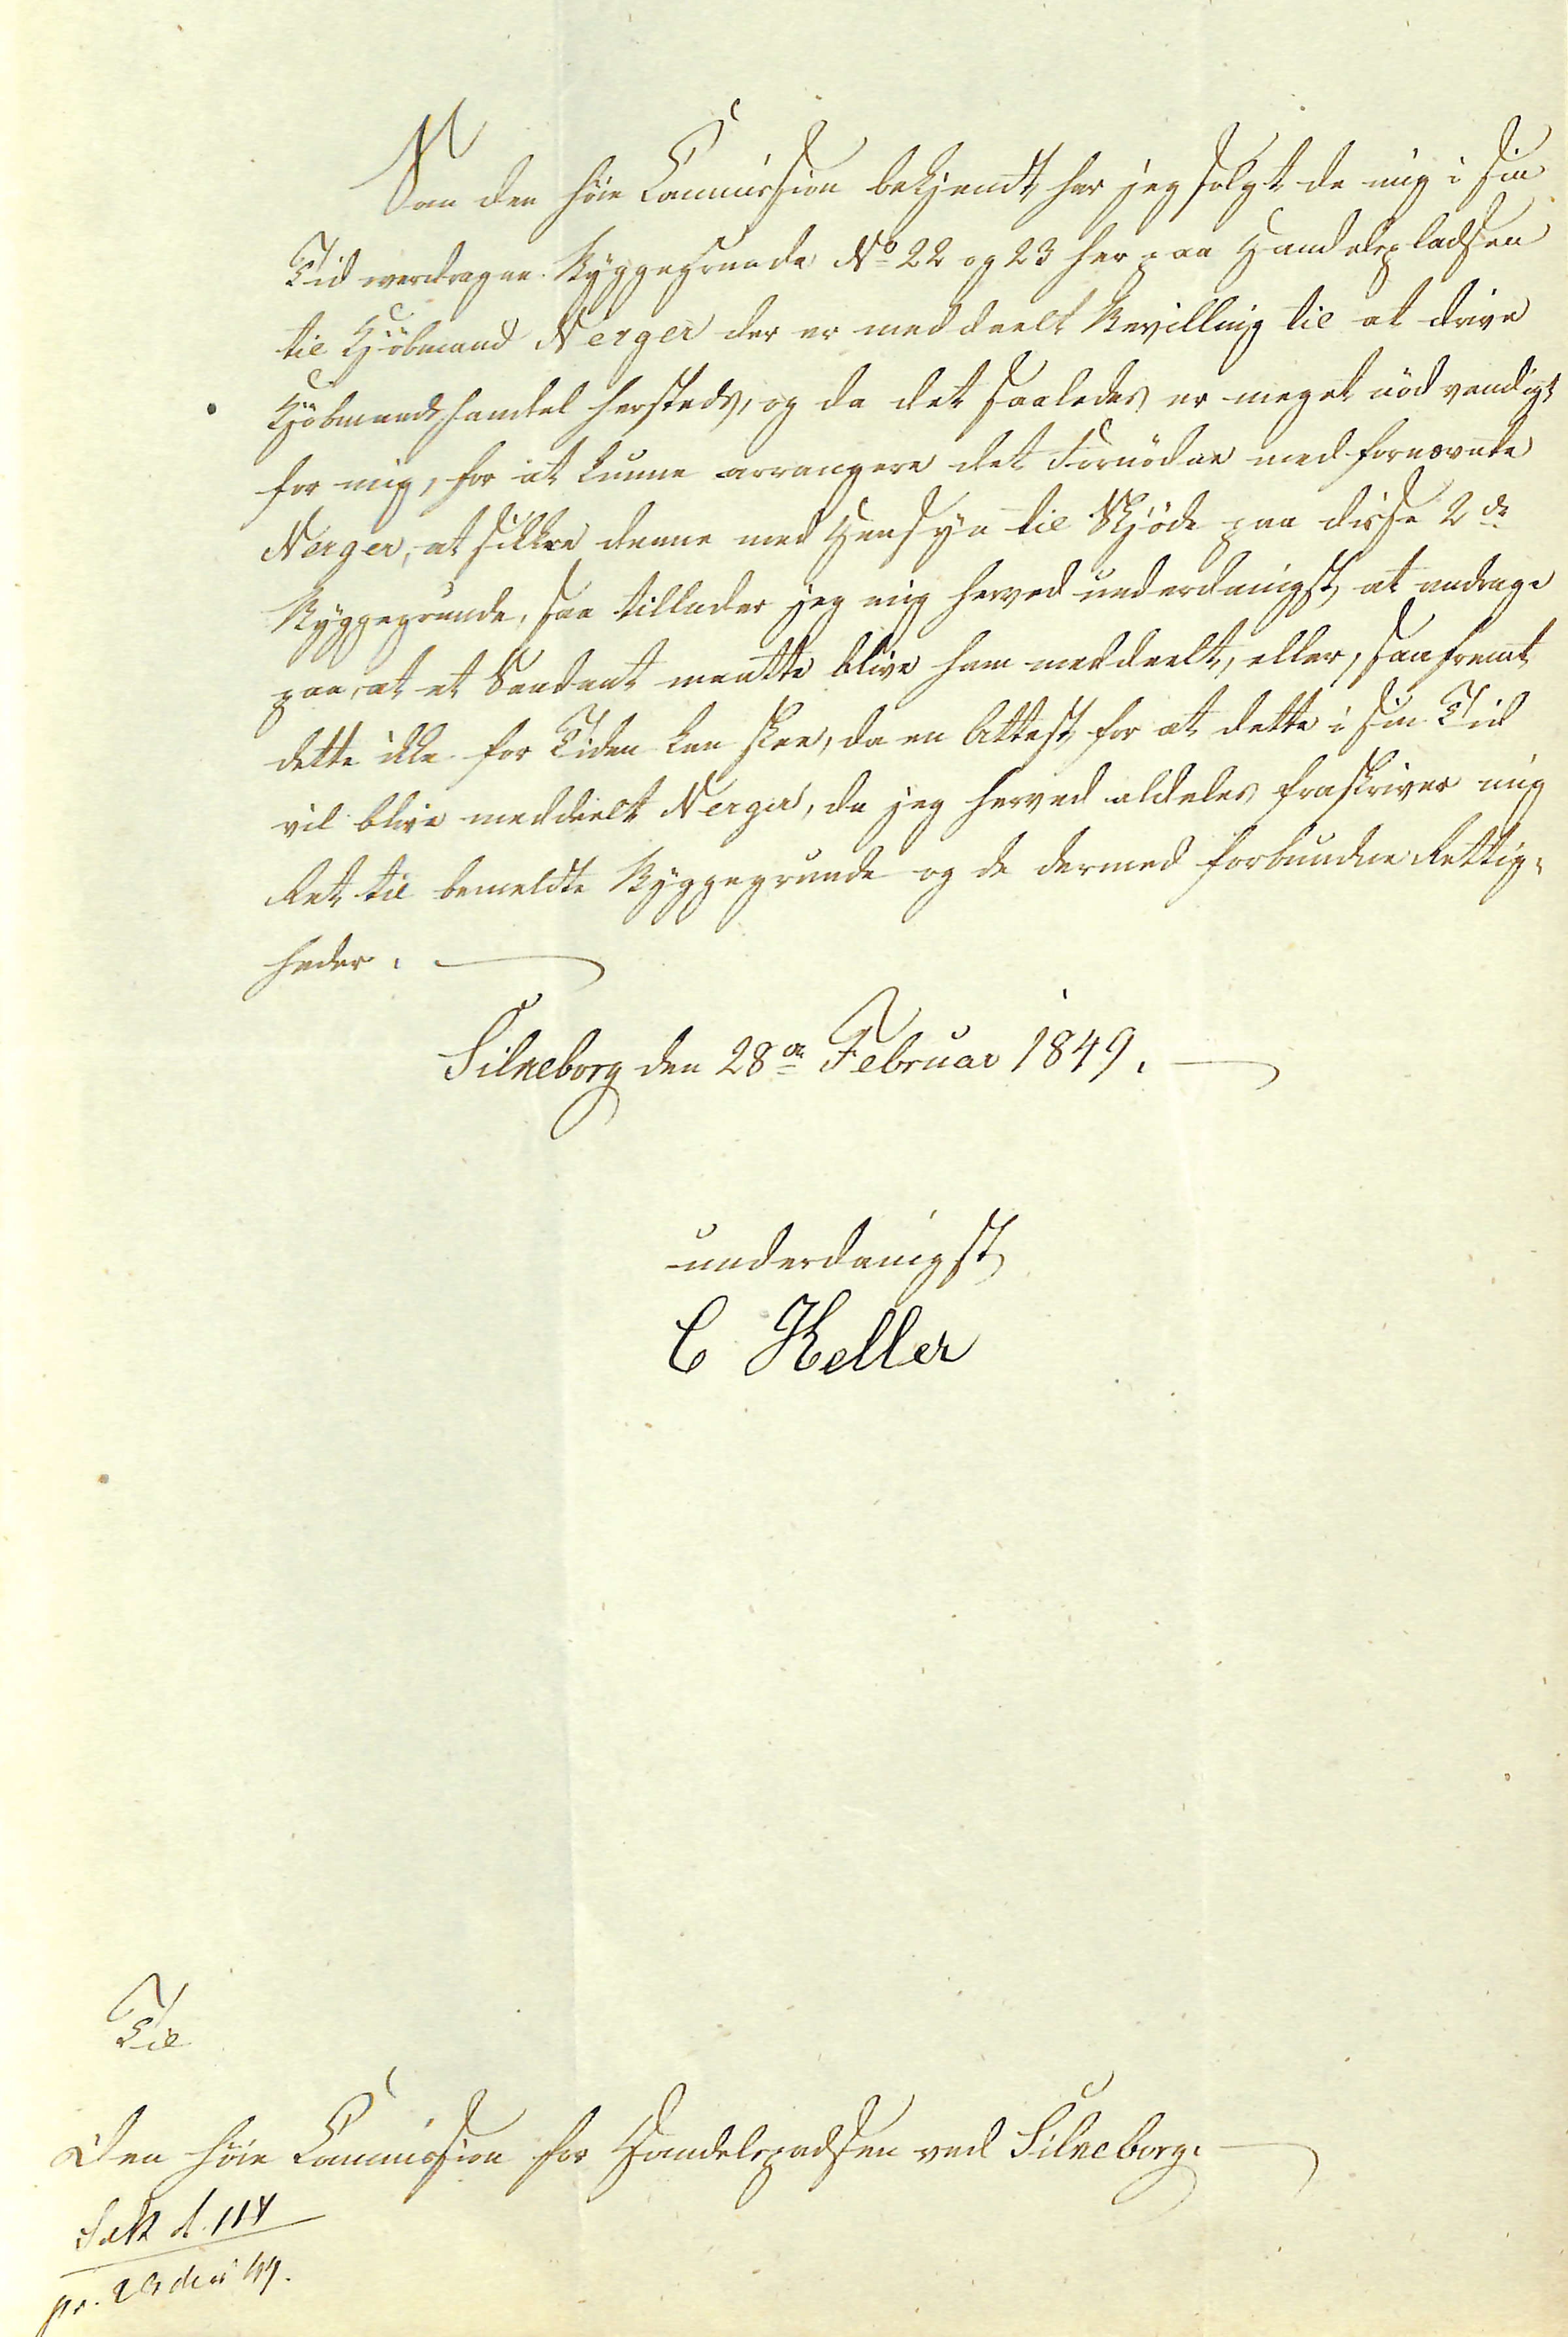 Som den høie Commission bekjendt, har jeg solgt de mig i sin
Tid overdragne Byggegrunde No 22 og 23 her paa Handelspladsen
til Kjöbmand Nerger der er meddeelt Bevilling til at drive
Kjöbmandshandel hersteds, og da det saaledes er meget nödvendigt
for mig, for at kunne arrangere det Fornödne med fornævnte
Nerger, at sikkre denne med Hensyn til Skjöde paa disse 2de
Byggegrunde, saa tillader jeg mig herved underdanigst, at andrage
paa, at et Saadant maatte blive ham meddeelt, eller, saafremt
dette ikke for Tiden kan skee, da en Attest for at dette i sin Tid
vil blive meddeelt Nerger, da jeg herved aldeles fraskriver mig
Ret til bemeldte Byggegrunde og de dermed forbundne Rettig-
heder.
Silkeborg den 28de Februar 1849.
underdanigst
C Keller
Til
Den høie Commission for Handelspadsen ved Silkeborg.